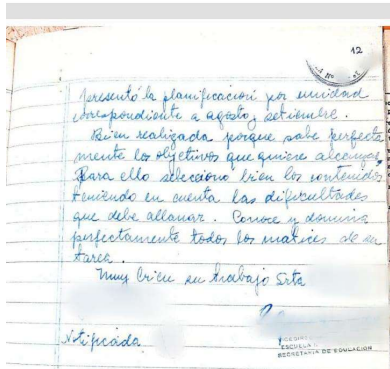 12
Nº
presentó la planificación por unidad
correspondiente a agosto, setiembre.
Bien realizada porque sabe perfecta
mente los objetivos que quiere alcanzar.
Para ello selecciono bien los contenidos
teniendo en cuenta las dificultades
que debe allanar. Conoce y domina
perfectamente todos los matices de su
tarea.
Muy bien su trabajo Srta
Notificada
ESCUELA
SECRETARÍA DE EDUCACIÓN